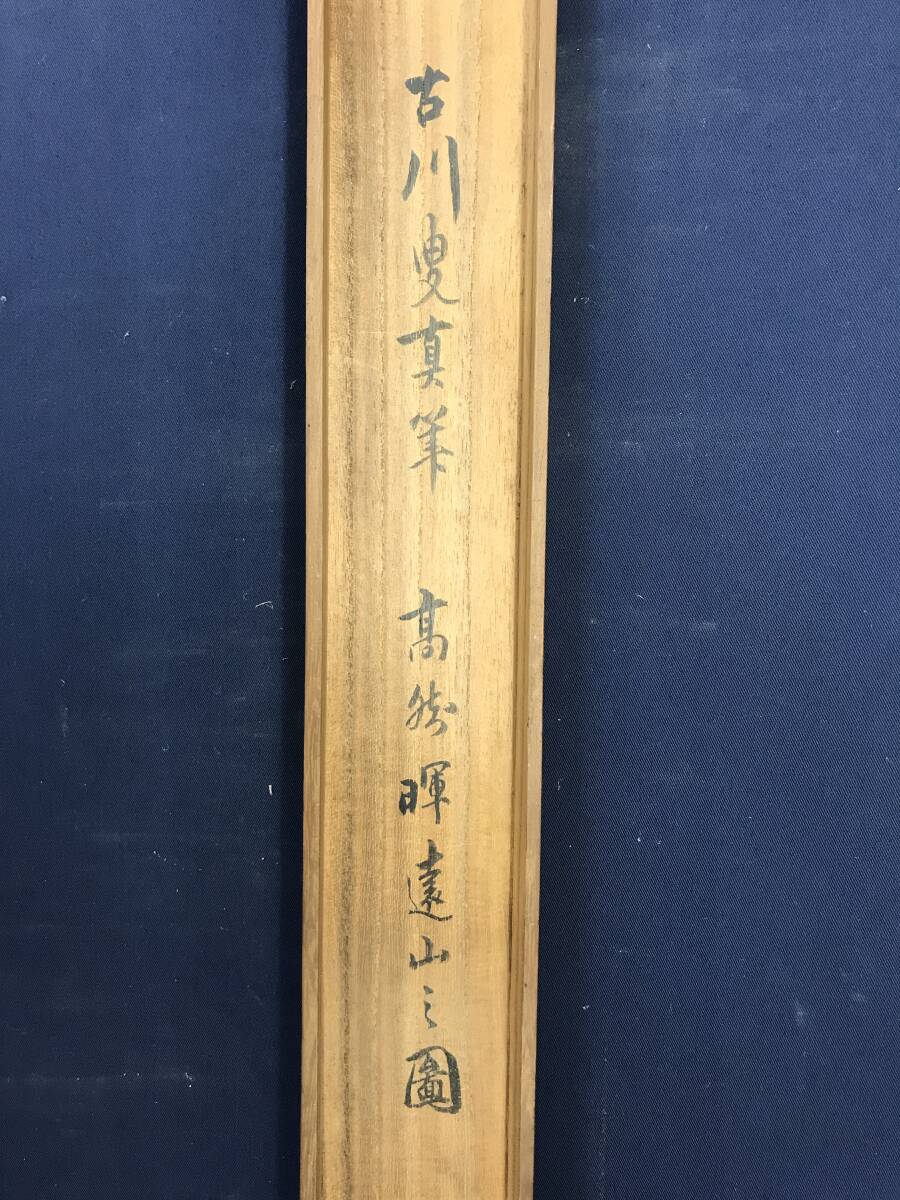 古川叟真筆 高然暉遠山之圖